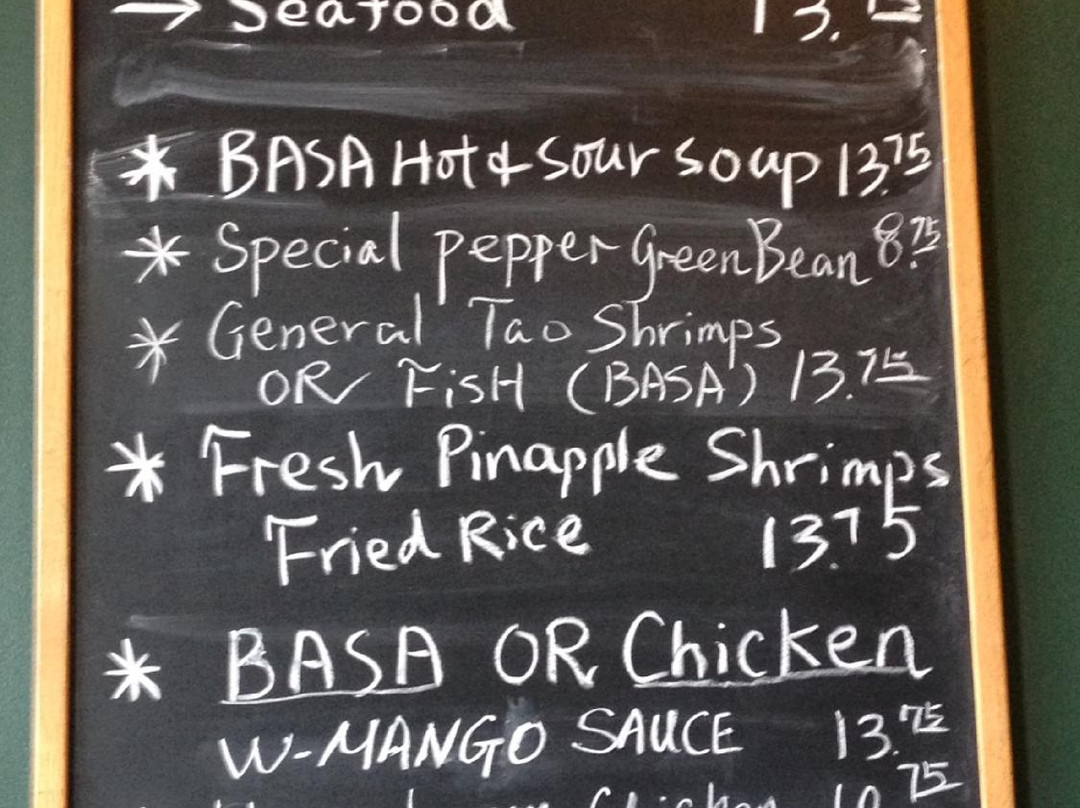 → Seafood 13.
* BASA Hot & Sour Soup 13.75
* Special pepper Green Bean 8.75
* General Tao Shrimps
OR FiSH (BASA) 13.75
* Fresh Pinapple Shrimps
Fried Rice 13.75
* BASA OR Chicken
W-MANGO SAUCE 13.75
Chicken 10.75